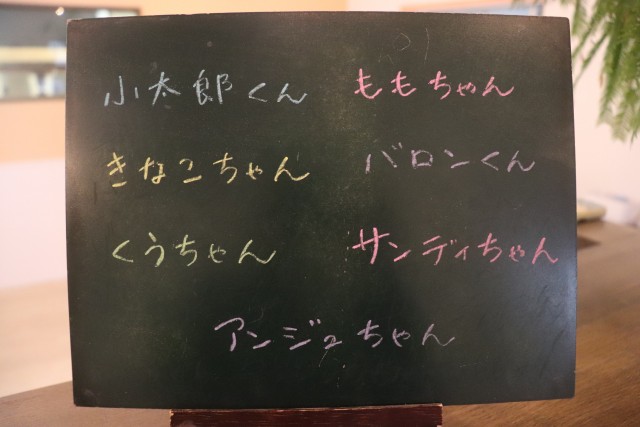 小太郎くん ももちゃん
きなこちゃん バロンくん
くうちゃん サンディちゃん
アンジュちゃん